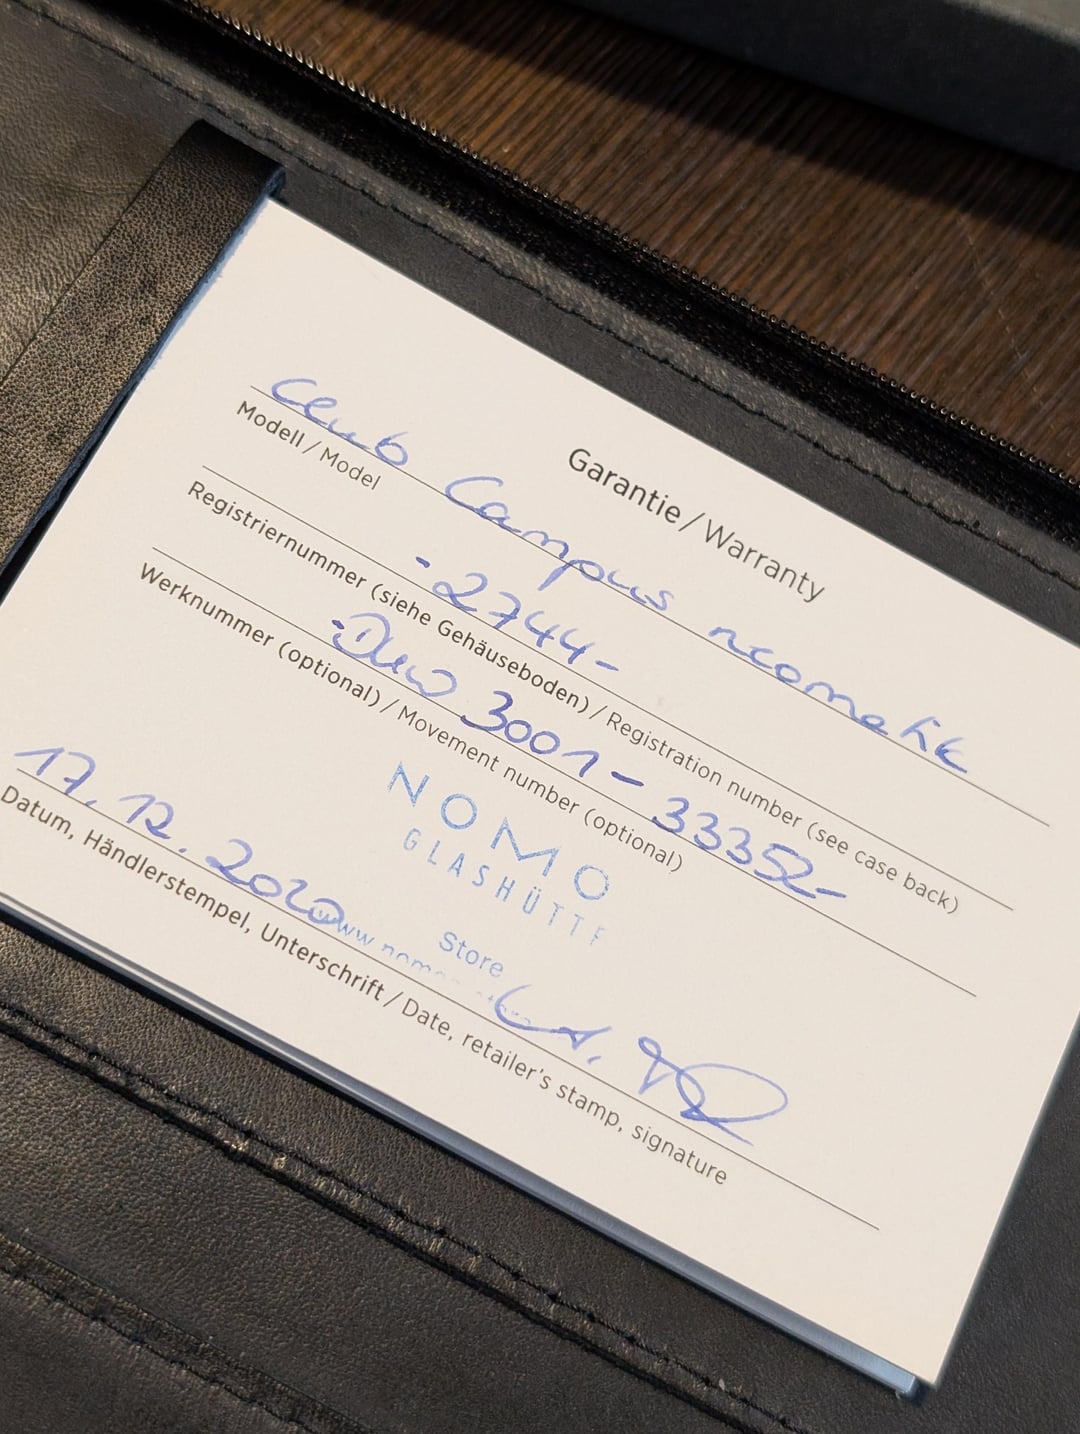 Garantie / Warranty
Club Campus neomatik
Modell / Model
- 2744 -
Registriernummer (siehe Gehäuseboden) / Registration number (see case back)
- DUW 3001 - 33352 -
Werknummer (optional) / Movement number (optional)
NOMO
GLASHÜTTE
Store
17. 12. 2020
www
Datum, Händlerstempel, Unterschrift / Date, retailer's stamp, signature